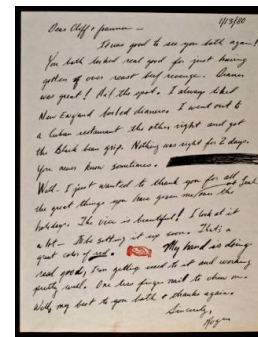 1/13/80
Dear Cliff + Joannon —
It was good to see you both again!
You both looked real good for just having
gotten of over roast beef revenge. Dinner
was great! Hit the spot. I always liked
New England boiled dinners. I went out to
a Cuban restaurant the other night and got
the Black bean grip. Nothing was right for 2 days.
You never know sometimes.
Well. I just wanted to thank you for all
the great things you have given me over the
holidays. The view is beautiful! I look at it
a lot — I'll be setting it up soon. That's a
great color of red. My hand is doing
real good, I'm getting used to it and working
pretty well. One less finger nail to chew on.
Well, my best to you both + thanks again.
Sincerely,
Roger